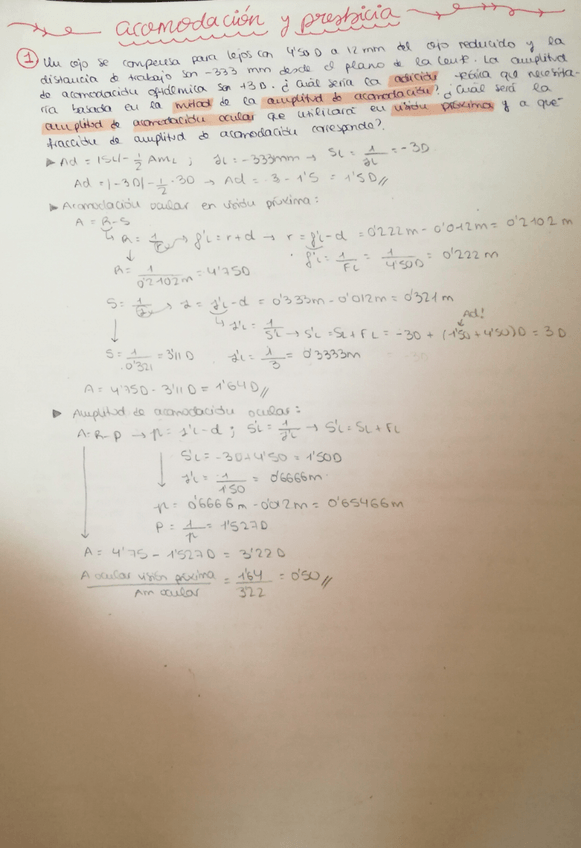 acomodación y presbicia
① Un ojo se compensa para lejos con 4'50 D a 12 mm del ojo reducido y la
distancia de trabajo son -333 mm desde el plano de la lente. La amplitud
de acomodación oftálmica son +3D. ¿Cuál sería la adición teórica que necesita-
ría basada en la mitad de la amplitud de acomodación? ¿Cuál será la
amplitud de acomodación ocular que utilizará en visión próxima y a qué
fracción de amplitud de acomodación corresponde?
▸ Ad = |SL| - 1/2 AmL ; zL = -333mm → SL = 1/zL = -3D
Ad = |-3D| - 1/2 · 3D → Ad = 3 - 1'5 = 1'5D //
▸ Acomodación ocular en visión próxima:
A = R-S
↳ R = 1/r → f'L = r+d → r = f'L-d = 0'222m - 0'012m = 0'2102m
R = 1/0'2102m = 4'75D
f'L = 1/FL = 1/4'50D = 0'222m
S = 1/z → z = z'L-d = 0'333m - 0'012m = 0'321m
Ad!
↳ z'L = 1/S'L → S'L = SL + FL = -3D + (1'50 + 4'50)D = 3D
S = 1/0'321 = 3'11D z'L = 1/3 = 0'3333m
A = 4'75D - 3'11D = 1'64D //
▸ Amplitud de acomodación ocular:
A = R-P → r = z'L-d ; S'L = 1/z'L → S'L = SL + FL
S'L = -3D + 4'50 = 1'50D
z'L = 1/1'50 = 0'6666m
r = 0'6666m - 0'012m = 0'65466m
P = 1/r = 1'527D
A = 4'75 - 1'527D = 3'22D
A ocular visión próxima / Am ocular = 1'64/3'22 = 0'50 //